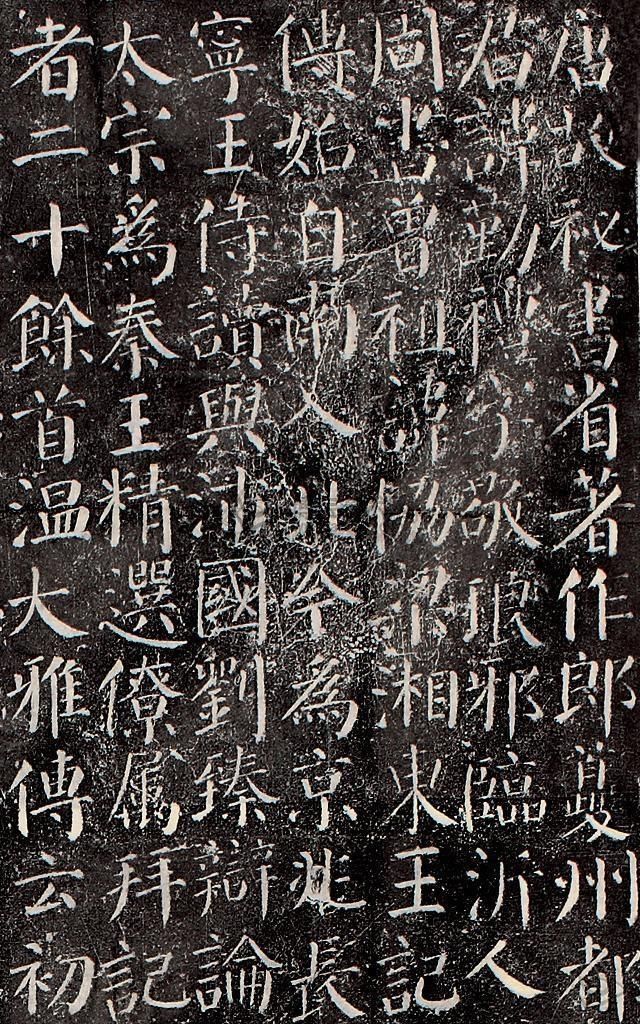 唐故秘書省著作郎夔州都
君諱勤禮字敬琅邪臨沂人
周曾祖諱協梁湘東王記
傳始自南入北今為京兆長
寧王侍讀與沛國劉臻辯論
太宗爲秦王精選僚属拜記
者二十餘首温大雅傳云初